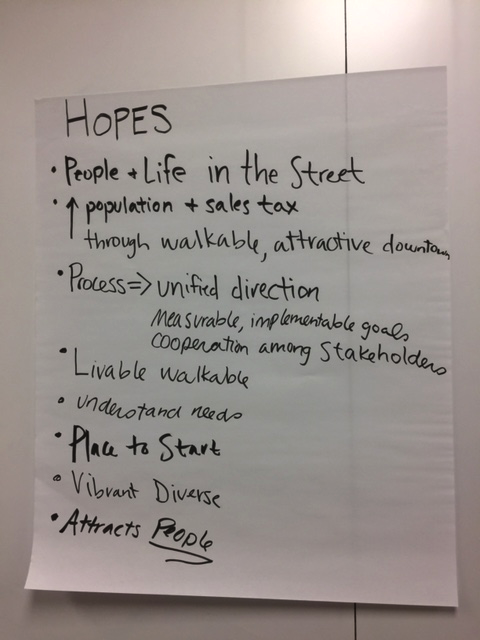 HOPES
• People + Life in the Street
• ↑ population + sales tax
through walkable, attractive downtown
• Process => unified direction
Measurable, implementable goals
cooperation among Stakeholders
• Livable walkable
• understand needs
• Place to Start
• Vibrant Diverse
• Attracts People